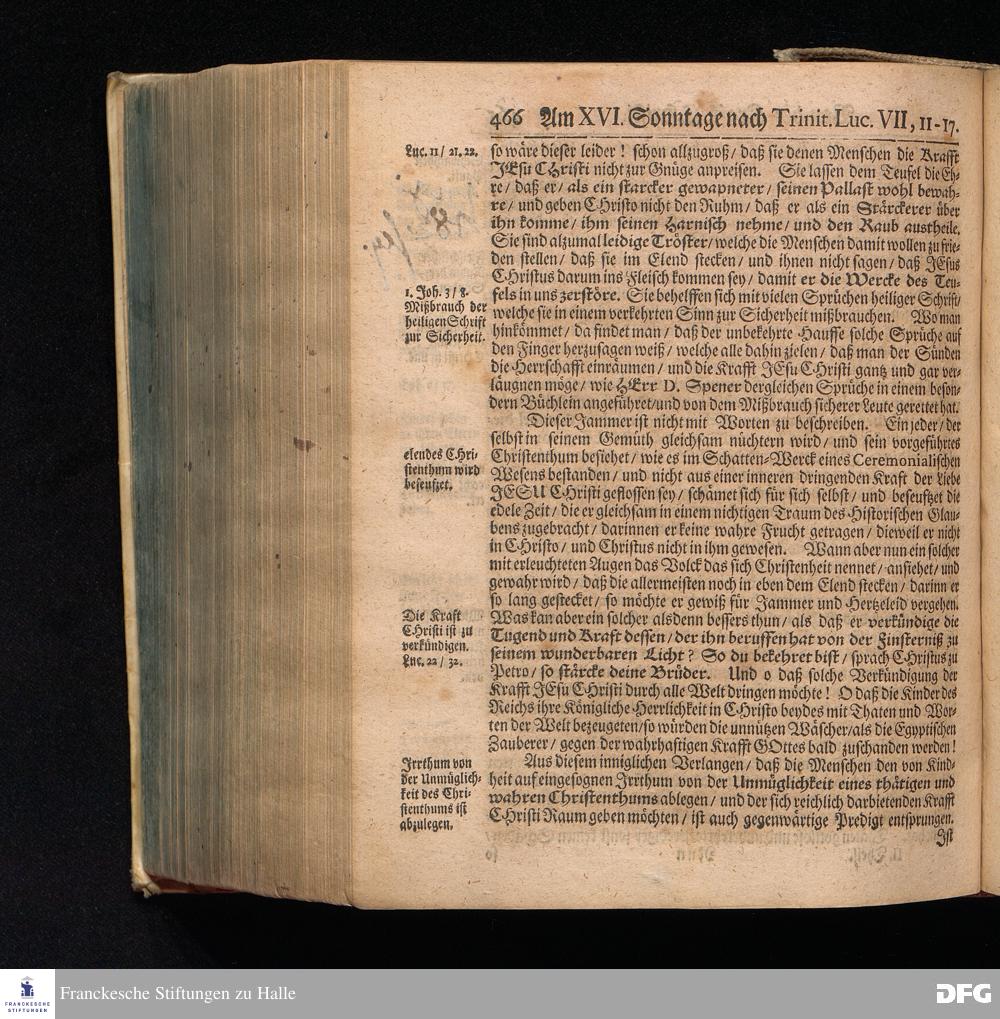 466 Am XVI. Sonntage nach Trinit. Luc. VII, 11-17.
Luc. 11 / 21. 22.
so wäre dieser leider! schon allzugroß / daß sie denen Menschen die Krafft
JEsu CHristi nicht zur Gnüge anpreisen. Sie lassen dem Teufel die Eh-
re / daß er / als ein starcker gewapneter / seinen Pallast wohl bewah-
re / und geben CHristo nicht den Ruhm / daß er als ein Stärckerer über
ihn komme / ihm seinen Harnisch nehme / und den Raub austheile.
Sie sind alzumal leidige Tröster / welche die Menschen damit wollen zu frie-
den stellen / daß sie im Elend stecken / und ihnen nicht sagen / daß JEsus
CHristus darum ins Fleisch kommen sey / damit er die Wercke des Teu-
1. Joh. 3 / 8.
Mißbrauch der
heiligen Schrift
zur Sicherheit.
fels in uns zerstöre. Sie behelffen sich mit vielen Sprüchen heiliger Schrift /
welche sie in einem verkehrten Sinn zur Sicherheit mißbrauchen. Wo man
hinkömmet / da findet man / daß der unbekehrte Hauffe solche Sprüche auf
den Finger herzusagen weiß / welche alle dahin zielen / daß man der Sünden
die Herrschafft einräumen / und die Krafft JEsu CHristi gantz und gar ver-
läugnen möge / wie HErr D. Spener dergleichen Sprüche in einem beson-
dern Büchlein angeführet / und von dem Mißbrauch sicherer Leute gerettet hat.
Dieser Jammer ist nicht mit Worten zu beschreiben. Ein jeder / der
selbst in seinem Gemüth gleichsam nüchtern wird / und sein vorgeführtes
elendes Chri-
stenthum wird
beseufzet.
Christenthum besiehet / wie es im Schatten-Werck eines Ceremonialischen
Wesens bestanden / und nicht aus einer inneren dringenden Kraft der Liebe
JESU CHristi geflossen sey / schämet sich für sich selbst / und beseufzet die
edele Zeit / die er gleichsam in einem nichtigen Traum des Historischen Glau-
bens zugebracht / darinnen er keine wahre Frucht getragen / dieweil er nicht
in CHristo / und Christus nicht in ihm gewesen. Wann aber nun ein solcher
mit erleuchteten Augen das Volck das sich Christenheit nennet / ansiehet / und
gewahr wird / daß die allermeisten noch in eben dem Elend stecken / darinn er
so lang gestecket / so möchte er gewiß für Jammer und Hertzeleid vergehen.
Die Kraft
CHristi ist zu
verkündigen.
Luc. 22 / 32.
Was kan aber ein solcher alsdenn bessers thun / als daß er verkündige die
Tugend und Kraft dessen / der ihn beruffen hat von der Finsterniß zu
seinem wunderbaren Licht? So du bekehret bist / sprach CHristus zu
Petro / so stärcke deine Brüder. Und o daß solche Verkündigung der
Krafft JEsu CHristi durch alle Welt dringen möchte! O daß die Kinder des
Reichs ihre Königliche Herrlichkeit in CHristo beydes mit Thaten und Wor-
ten der Welt bezeugeten / so würden die unnützen Wäscher / als die Egyptischen
Zauberer / gegen der wahrhaftigen Krafft GOttes bald zuschanden werden!
Irrthum von
der Unmüglich-
keit des Chri-
stenthums ist
abzulegen.
Aus diesem inniglichen Verlangen / daß die Menschen den von Kind-
heit auf eingesognen Irrthum von der Unmüglichkeit eines thätigen und
wahren Christenthums ablegen / und der sich reichlich darbietenden Krafft
CHristi Raum geben möchten / ist auch gegenwärtige Predigt entsprungen.
Ist
FRANCKESCHE
STIFTUNGEN
Franckesche Stiftungen zu Halle
DFG